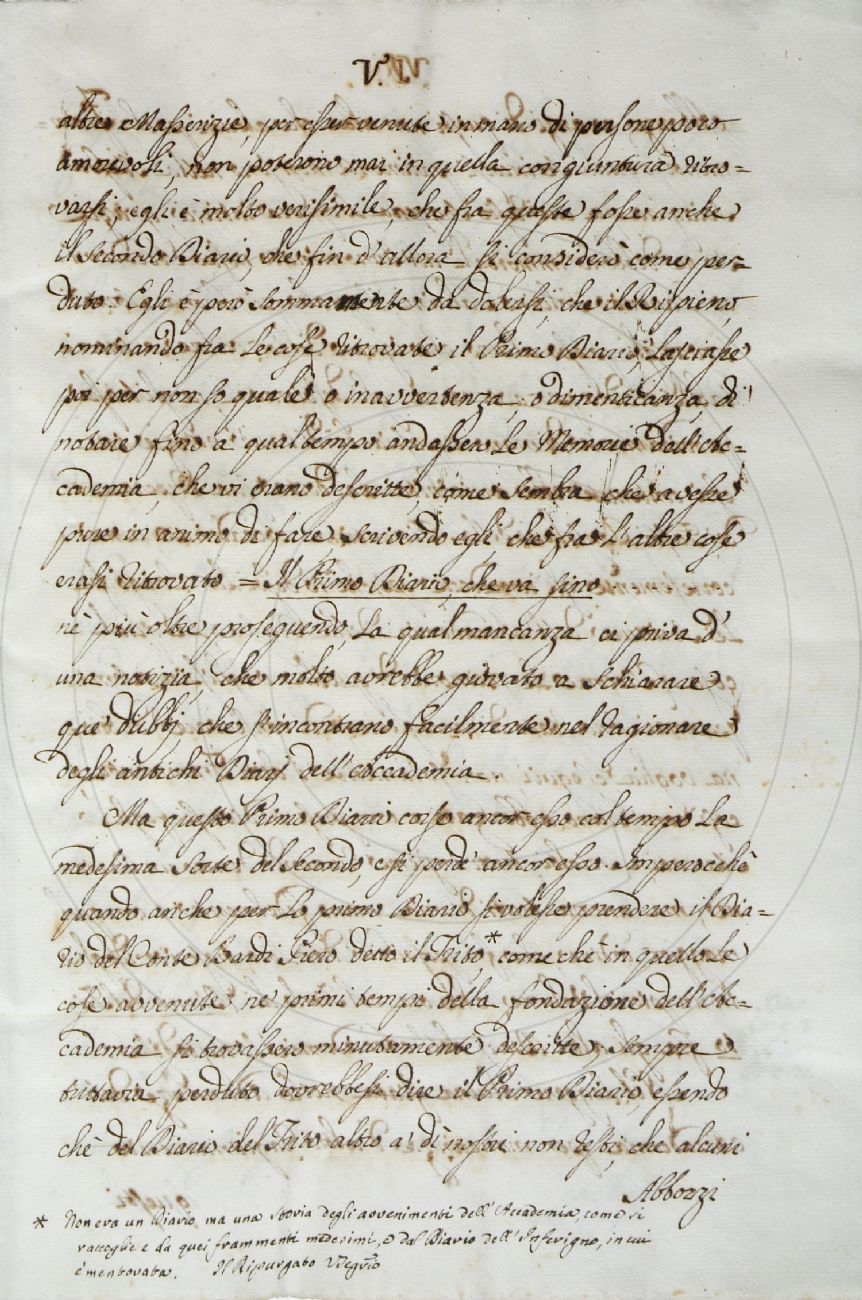 V.
altre Masserizie, per esser venute in mano di persone poco
amorevoli, non poterono mai in quella congiuntura ritro=
varsi; egli è molto verisimile, che fra queste fosse anche
il Secondo Diario, che fin d'allora si considerò come per=
duto. Egli è però sommamente da dolersi, che il Ripieno,
nominando fra le cose ritrovate il Primo Diario, lasciasse
poi per non so quale o inavvertenza, o dimenticanza, di
notare fino a qual tempo andassero le Memorie dell'Ac=
cademia, che vi erano descritte, come sembra che avesse
pure in animo di fare, scrivendo egli, che fra l'altre cose
erasi ritrovato = Il Primo Diario, che va sino
nè più oltre proseguendo. La qual mancanza ci priva d'
una notizia, che molto avrebbe giovato a schiarare
que' dubbj, che s'incontrano facilmente nel ragionare
degli antichi Diarj dell'Accademia.
Ma questo Primo Diario corse ancor esso col tempo la
medesima sorte del Secondo, e si perdè ancor esso. Imperocchè
quando anche per lo primo Diario si volesse prendere il Dia=
rio del Conte Bardi Piero detto il Trito,* come che in quello le
cose avvenute ne' primi tempi della fondazione dell'Ac=
cademia si trovassero minutamente descritte, sempre
tuttavia perduto dovrebbesi dire il Primo Diario, essendo
chè del Diario del Trito altro a' dì nostri non resti, che alcuni
Abbozzi
* Non era un Diario, ma una Storia degli avvenimenti dell'Accademia, come si
raccoglie e da quei frammenti medesimi, e dal Diario dell'Inferigno, in cui
è mentovata. Il Ripurgato